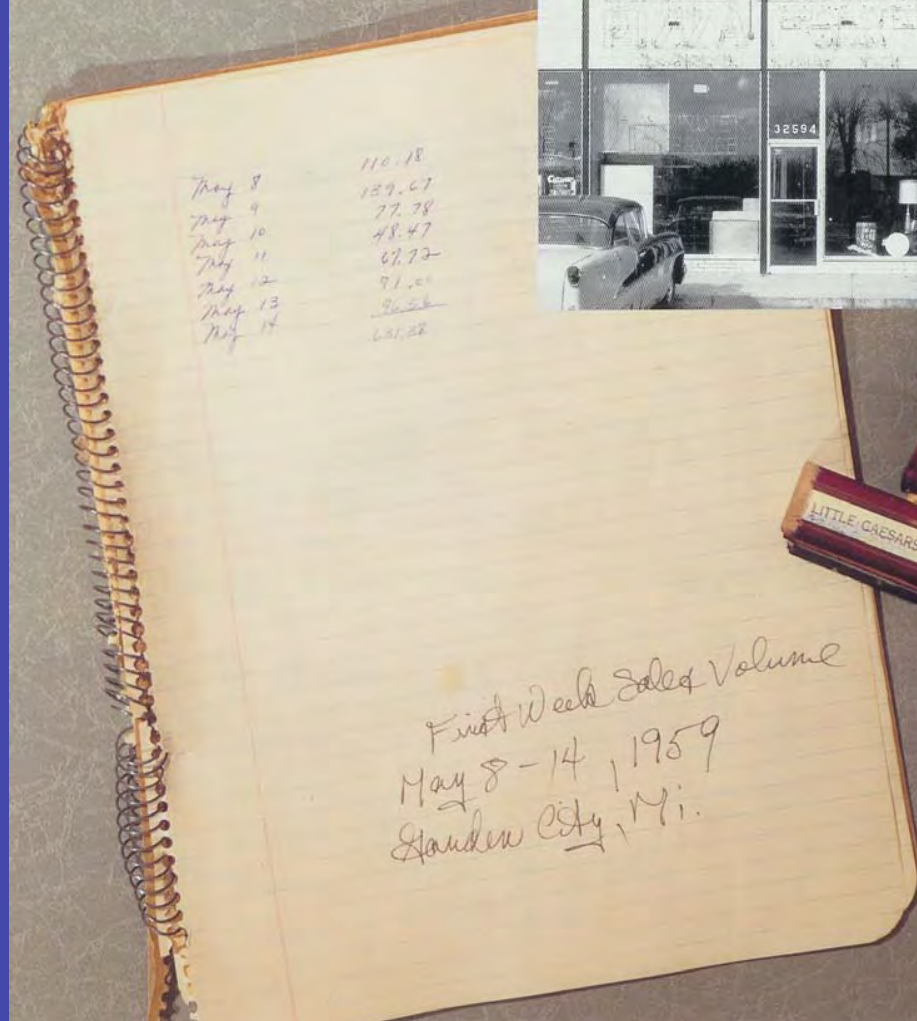 32594
May 8 110.18
May 9 139.67
May 10 77.78
May 11 48.47
May 12 67.72
May 13 91.00
May 14 96.56
631.38
LITTLE CAESARS
First Week Sales Volume
May 8-14, 1959
Garden City, Mi.